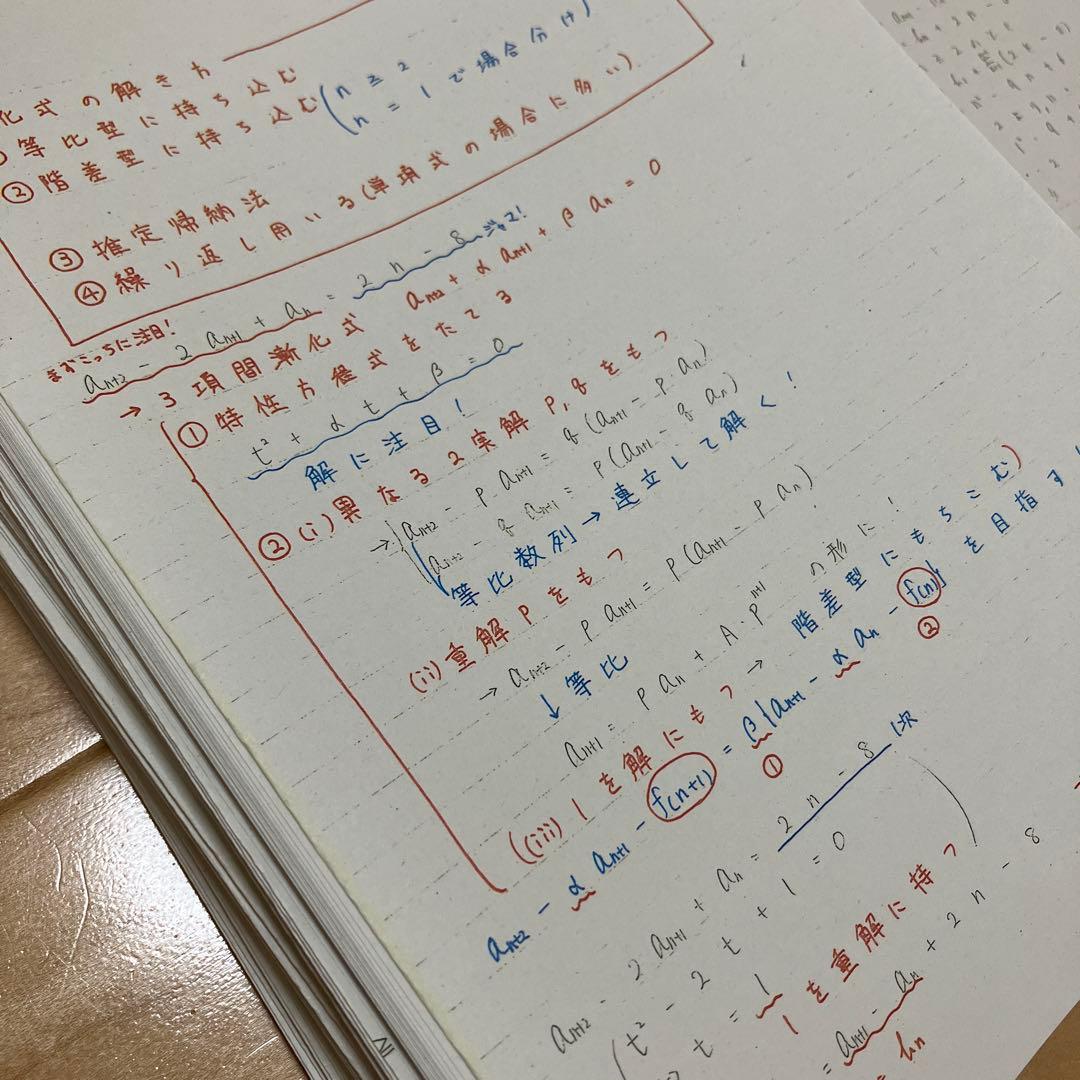 化式の解き方
等比型に持ち込む
②階差型に持ち込む(n≧2 n=1で場合分け)
③推定帰納法
④繰り返し用いる(単項式の場合に多い)
まずこっちに注目!
aₙ₊₂ - 2aₙ₊₁ + aₙ = 2n - 8 ジャマ!
→3項間漸化式 aₙ₊₂ + αaₙ₊₁ + βaₙ = 0
①特性方程式をたてる
t² + αt + β = 0
解に注目!
②(i)異なる2実解p,qをもつ
→{aₙ₊₂ - p aₙ₊₁ = q(aₙ₊₁ - p aₙ)
aₙ₊₂ - q aₙ₊₁ = p(aₙ₊₁ - q aₙ)
等比数列→連立して解く!
(ii)重解pをもつ
→aₙ₊₂ - p aₙ₊₁ = p(aₙ₊₁ - p aₙ)
↓等比
aₙ₊₁ = p aₙ + A・pⁿ⁺¹ の形に!
((iii)1を解にもつ→階差型にもちこむ)
aₙ₊₂ - αaₙ₊₁ - f(n+1) = β{aₙ₊₁ - αaₙ - f(n)}を目指す!
① ②
aₙ₊₂ - 2aₙ₊₁ + aₙ = 2n - 8 1次
(t² - 2t + 1 = 0
t = 1
1を重解に持つ)
= aₙ₊₁ - aₙ + 2n - 8
= bₙ